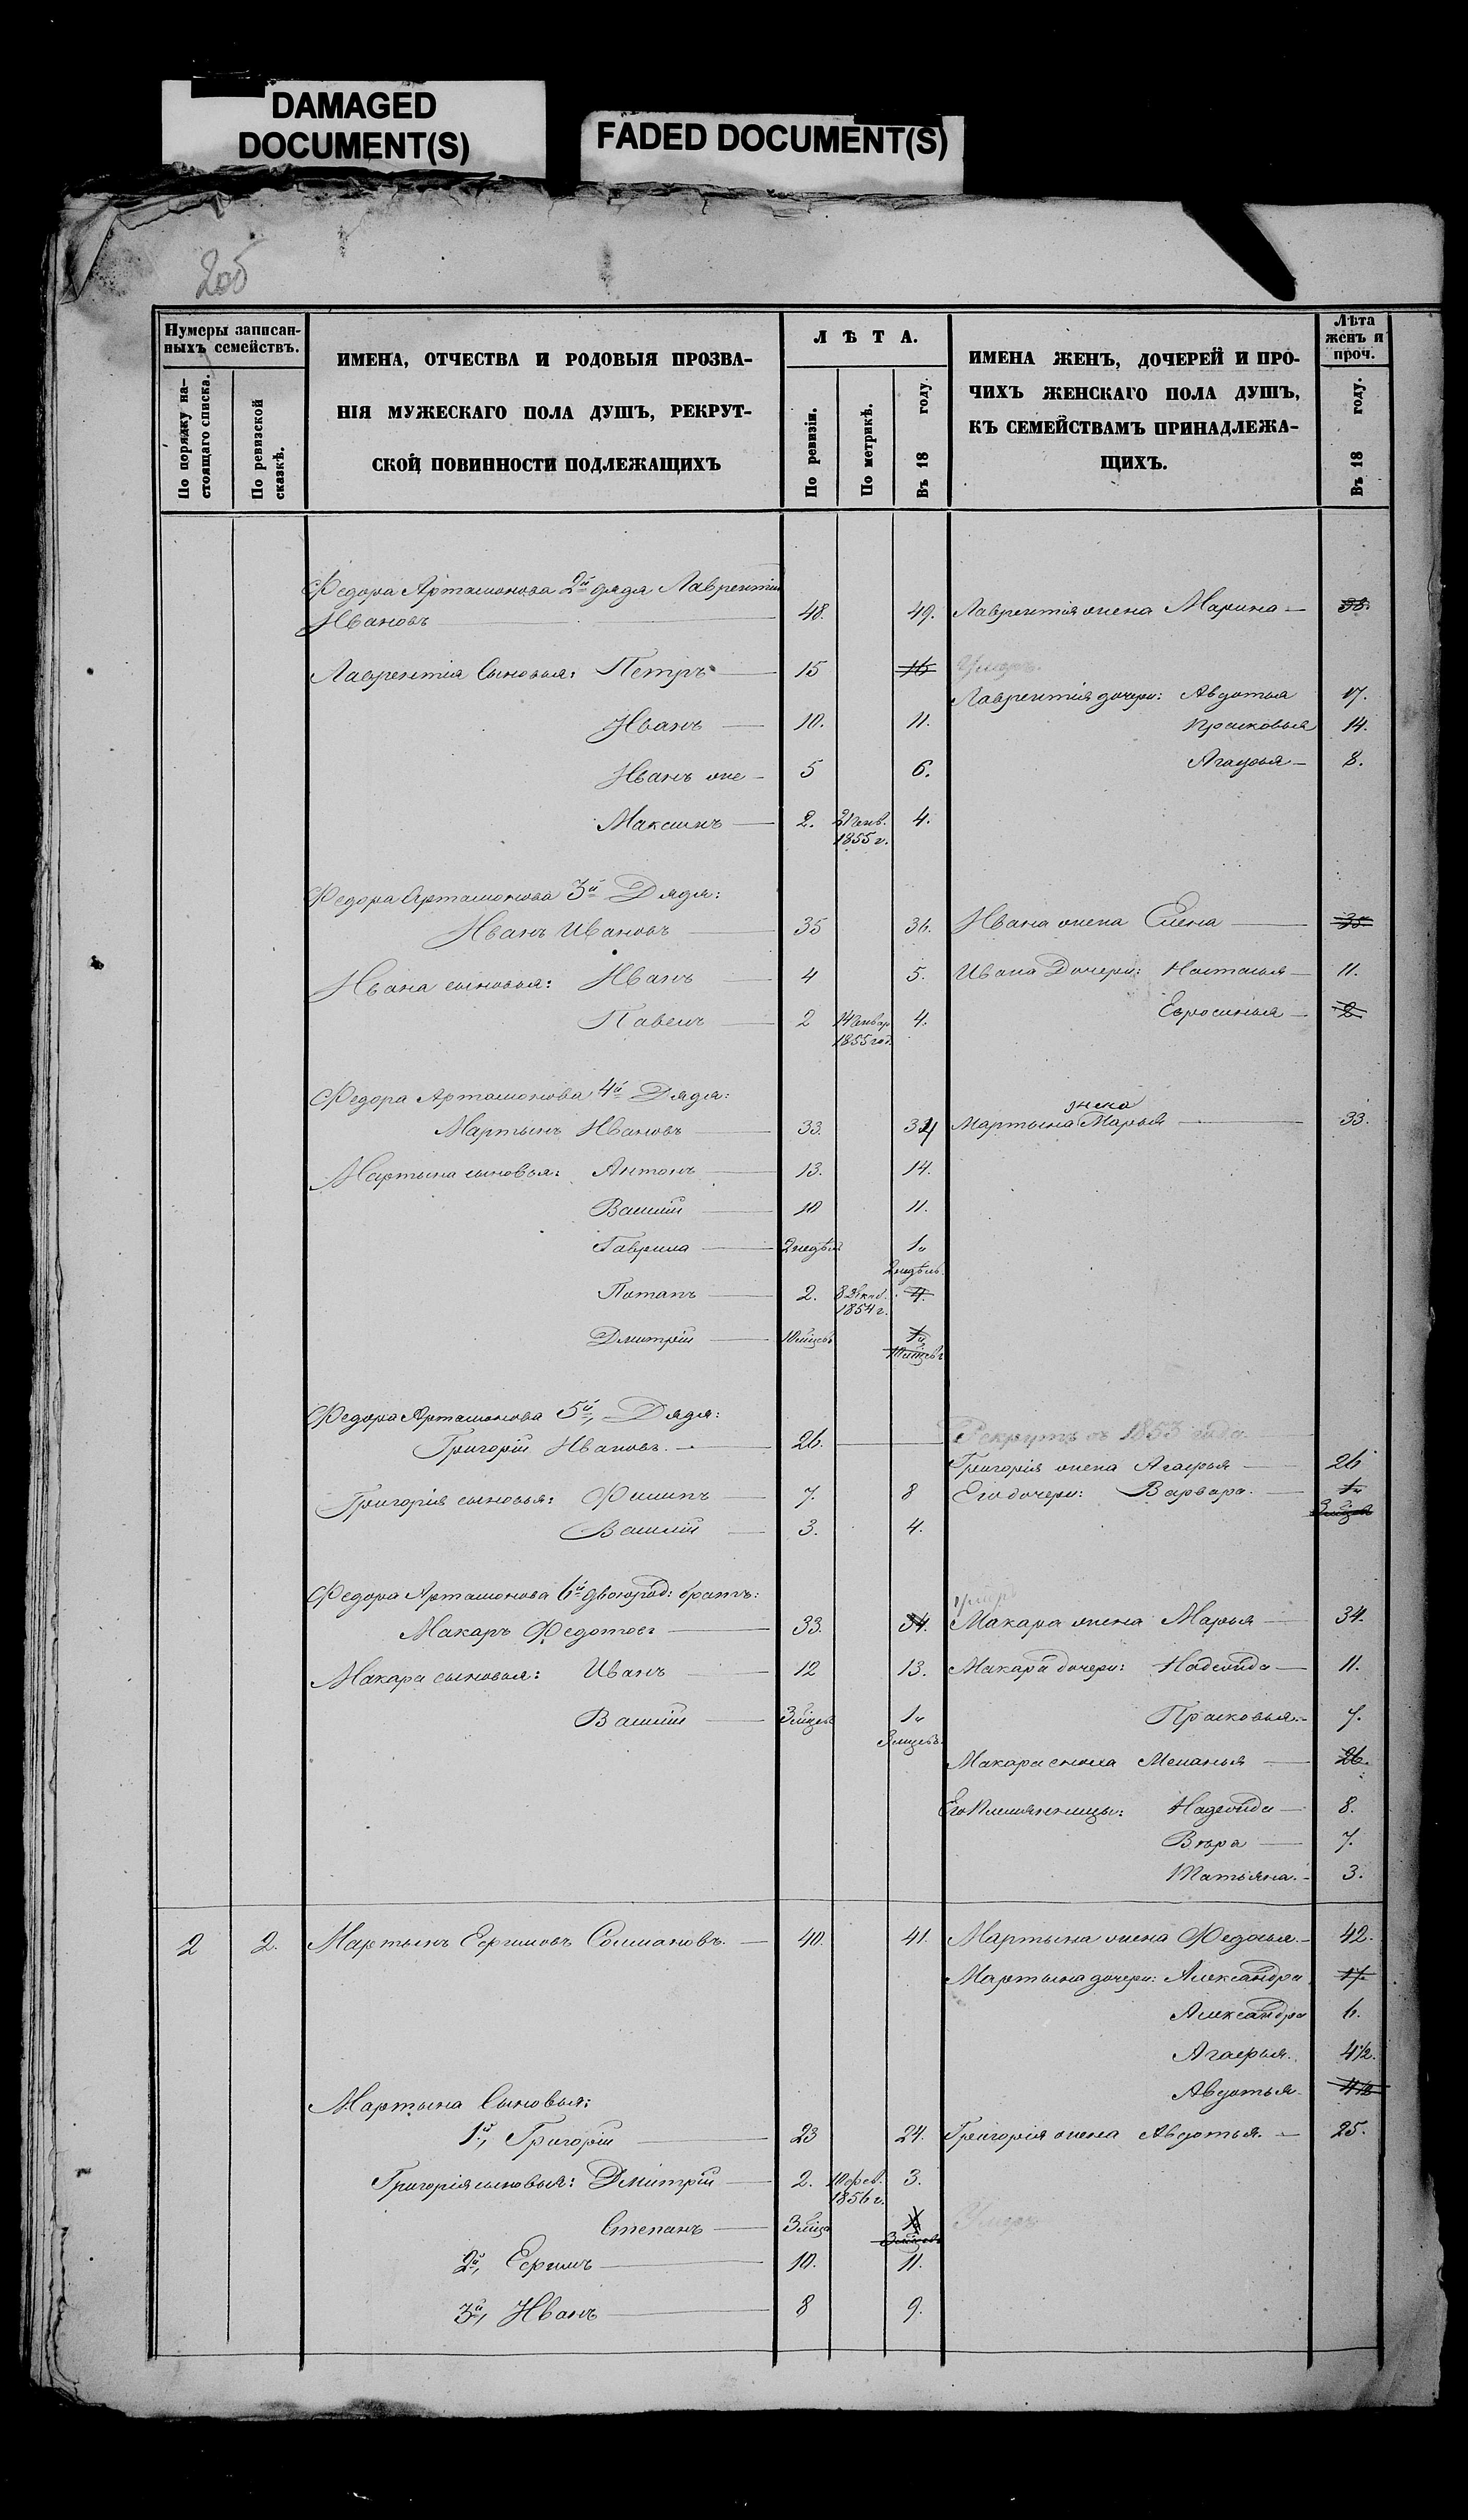 DAMAGED
DOCUMENT(S)
FADED DOCUMENT(S)
2об
Нумеры записан-
ныхъ семействъ.
По порядку на-
стоящаго списка.
По ревизской
сказкѣ.
ИМЕНА, ОТЧЕСТВА И РОДОВЫЯ ПРОЗВА-
НІЯ МУЖЕСКАГО ПОЛА ДУШЪ, РЕКРУТ-
СКОЙ ПОВИННОСТИ ПОДЛЕЖАЩИХЪ
ЛѢТА.
По ревизіи.
По метрикѣ.
Въ 18 году.
ИМЕНА ЖЕНЪ, ДОЧЕРЕЙ И ПРО-
ЧИХЪ ЖЕНСКАГО ПОЛА ДУШЪ,
КЪ СЕМЕЙСТВАМЪ ПРИНАДЛЕЖА-
ЩИХЪ.
Лѣта
женъ и
проч.
Въ 18 году.
Федора Артамонова 2й дядя Лаврентій
Ивановъ 48. 49. Лаврентія жена Марина 38.
Лаврентія Сыновья: Петръ 15 16 Умеръ.
Лаврентія дочери: Авдотья 17.
Иванъ 10. 11. Прасковья 14.
Иванъ же 5 6. Агафья 8.
Максимъ 2. 21 генв. 1855 г. 4.
Федора Артамонова 3й Дядя:
Иванъ Ивановъ 35 36. Ивана жена Елена 35
Ивана сыновья: Иванъ 4 5. Ивана Дочери: Настасья 11.
Павелъ 2 14 Январ 1855 год. 4. Ефросинья 2
Федора Артамонова 4й Дядя:
Мартынъ Ивановъ 33. 34 Мартына жена Марья 33.
Мартына сыновья: Антонъ 13. 14.
Василій 10 11.
Гаврила 2 недѣли 1 и 2 недѣль.
Потапъ 2. 8 Декаб. 1854 г. 4.
Дмитрій 10 мцевъ 1 и 10 мцевъ
Федора Артамонова 5й, Дядя:
Григорій Ивановъ. 26. Рекрутъ съ 1853 года
Григорія жена Агафья 26
Григорія сыновья: Филипъ 7. 8 Его дочери: Варвара. 1 и 3 мцевъ
Василій 3. 4.
Федора Артамонова 6й двоюрод: братъ:
умеръ
Макаръ Федотовъ 33. 34. Макара жена Марья 34.
Макара сыновья: Иванъ 12 13. Макара дочери: Надежда 11.
Василій 3 мцевъ 1 и 3 мцевъ. Прасковья 7.
Макара сноха Меланья 26.
Его Племянницы: Надежда 8.
Вѣра 7.
Татьяна. 3.
2 2. Мартынъ Ефимовъ 40. 41. Мартына жена Федосья. 42.
Мартына дочери: Александра 17.
Александра 6.
Агафья. 4 1/2.
Авдотья. 4 1/2
Мартына Сыновья:
1й, Григорій 23 24. Григорія жена Авдотья. 25.
Григорія сыновья: Дмитрій 2. 10 фев. 1856 г. 3.
Степанъ 3 мцв 3 мцевъ Умеръ
2й, Ефимъ 10. 11.
3й, Иванъ 8 9.